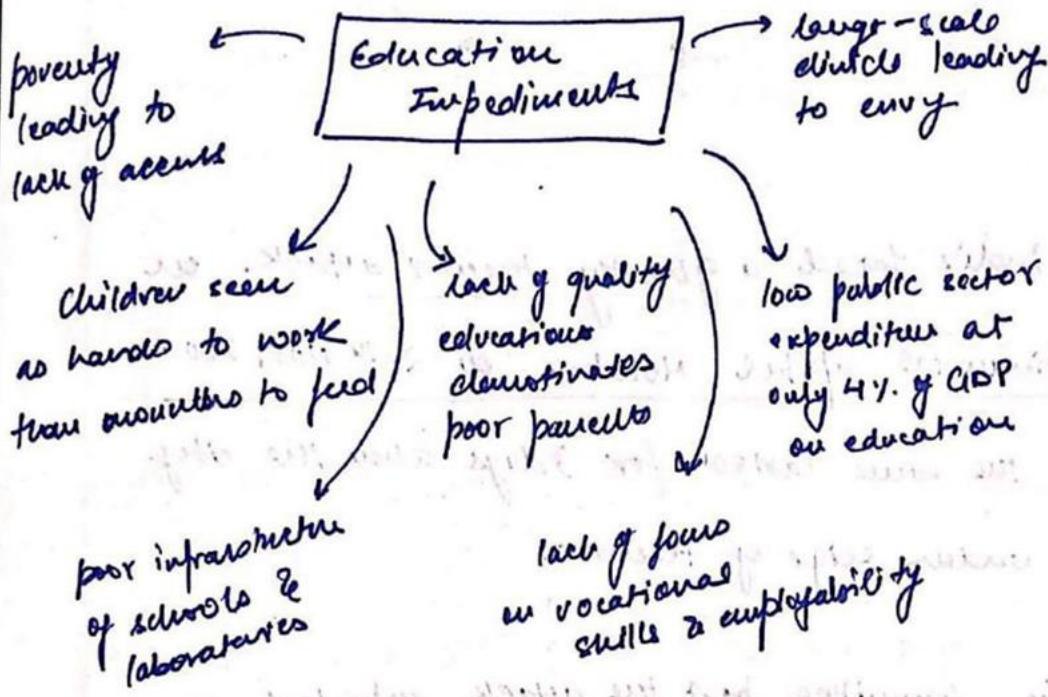 Education
Impediments
poverty
leading to
lack of access
large-scale
leading
to envy
Children seen
as hands to work
than mouths to feed
lack of quality
education
demotivates
poor parents
low public sector
expenditure at
only 4% of GDP
on education
poor infrastructure
of schools &
laboratories
lack of focus
on vocational
skills & employability